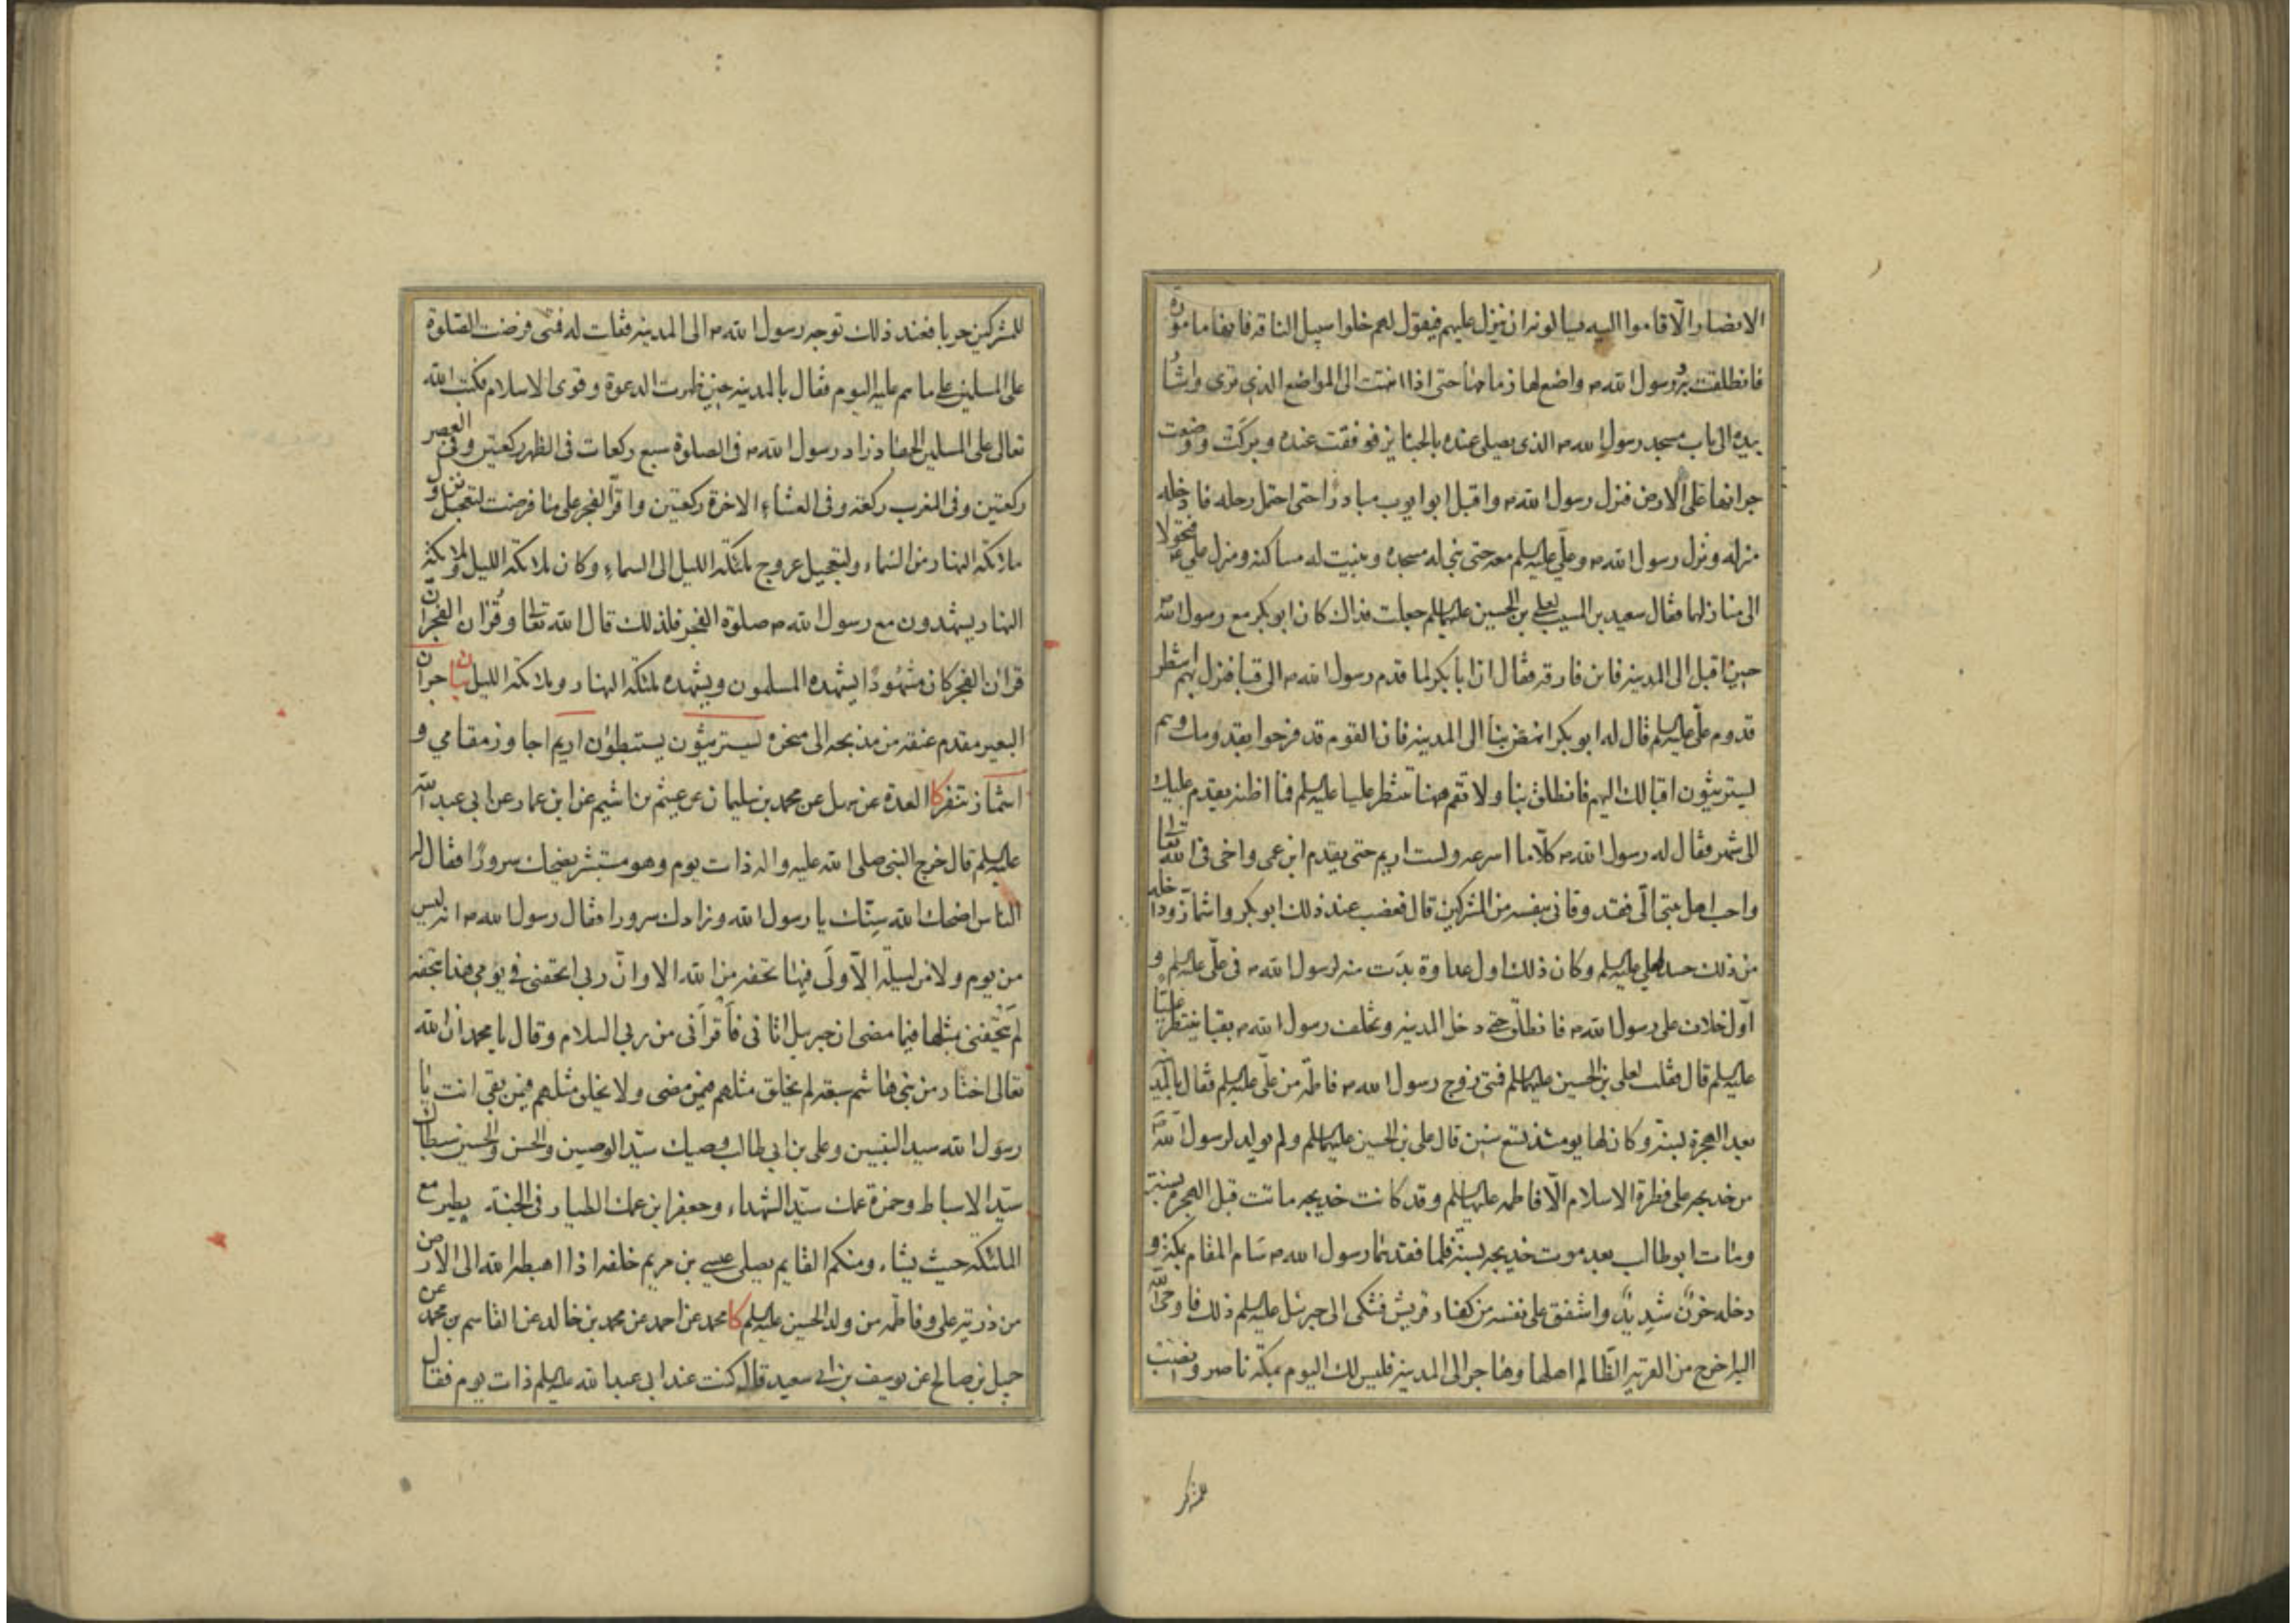 الانصار الّا قاموا اليه يسالونه ان ينزل عليهم فيقول لهم خلوا سبيل الناقة فانها مامورة
فانطلقت به ورسول الله ص واضع لها زمامها حتى اذا انتهت الى المواضع الذي ترى واشار
بيده الى باب مسجد رسول الله ص الذى يصلى عنده بالجنايز فوقفت عنده وبركت ووضعت
جرانها على الارض فنزل رسول الله ص واقبل ابو ايوب مبادرًا حتى احتمل رحله فادخله
منزله ونزل رسول الله ص وعلّي عليه السلم معه حتى بنى له مسجده وبنيت له مساكنه ومنزل علي ع فتحولا
الى منازلهما فقال سعيد بن المسيب لعلي بن الحسين عليهما السلم جعلت فداك كان ابو بكر مع رسول الله ص
حين اقبل الى المدينه فاين فارقه فقال ان ابا بكر لما قدم رسول الله ص الى قبا فنزل بهم ينتظر
قدوم علّي عليه السلم قال له ابو بكر انهض بنا الى المدينه فان القوم قد فرحوا بقدومك وهم
يستريثون اقبالك اليهم فانطلق بنا ولا تقم ههنا تنتظر عليا عليه السلم فما اظنه يقدم عليك
الى شهر فقال له رسول الله ص كلّا ما اسرعه ولست اريم حتى يقدم ابن عمى واخى فى الله تعالى
واحب اهل بيتى الّى فقد وقانى بنفسه من المشركين قال فغضب عند ذلك ابو بكر واشمأزّ وداخله
من ذلك حسد لعلي عليه السلم وكان ذلك اول عداوة بدَت منه لرسول الله ص فى علّي عليه السلم و
اوّل خلاف على رسول الله ص فانطلق حتى دخل المدينه وتخلف رسول الله ص بقبا ينتظر عليًّا
عليه السلم قال فقلت لعلى بن الحسين عليهما السلم فمتى زوج رسول الله ص فاطمه من علّي عليه السلم فقال بالمدينه
بعد الهجرة بسنة وكان لها يومئذ تسع سنين قال على بن الحسين عليهما السلم ولم يولد لرسول الله ص
من خديجه على فطرة الاسلام الّا فاطمه عليها السلم وقد كانت خديجه ماتت قبل الهجرة بسنة
ومات ابو طالب بعد موت خديجه بسنة فلما فقدهما رسول الله ص سَام المقام بمكة و
دخله حزنٌ شديدٌ واشفق على نفسه من كفار قريش فشكى الى جبرئيل عليه السلم ذلك فاوحى الله
اليه اخرج من القرية الظالم اهلها وهاجر الى المدينه فليس لك اليوم بمكّه ناصر وانصب
للمشركين
للمشركين حربا فعند ذلك توجه رسول الله ص الى المدينه فقلت له فمتى فرضت الصّلوة
على المسلمين على ما هم عليه اليوم فقال بالمدينه حين ظهرت الدعوة وقوى الاسلام فكتب الله
تعالى على المسلمين الجهاد زاد رسول الله ص فى الصلوة سبع ركعات فى الظهر ركعتين وفى العصر
ركعتين وفى المغرب ركعة وفى العشاءِ الاخرة ركعتين واقرّ الفجر على ما فرضت لتعجيل نزول
ملائكة النهار من السّماء ولتعجيل عروج ملئكة الليل الى السماءِ وكان ملائكة الليل وملائكة
النهار يشهدون مع رسول الله ص صلوة الفجر فلذلك قال الله تعالى وقُران الفجر انّ
قران الفجر كان مشهُودًا يشهده المسلمون ويشهده ملئكة النهار وملائكة الليل بيان جران
البعير مقدم عنقه من مذبحه الى منحره يستريثون يستبطؤن اريم اجاوز مقامي و
اشمأز تنفر كا العدة عن سهل عن محمد بن سليمان عن عيثم بن اشيم عن ابن عمار عن ابي عبد الله
عليه السلم قال خرج النبى صلى الله عليه واله ذات يوم وهو مستبشر يضحك سرورًا فقال له
الناس اضحك الله سِنّك يا رسول الله وزادك سرورا فقال رسول الله ص انه ليس
من يوم ولا من ليلة الّا ولَى فيها تحفه من الله الا وانّ ربى اتحفنى فى يومى هذا بتحفه
لَم يَتحِفنى بمثلها فيما مضى ان جبرئيل اتانى فاَقراَنى من ربى السلام وقال يا محمد ان الله
تعالى اختار من بنى هاشم سبعه لم يخلق مثلهم فيمن مضى ولا يخلق مثلهم فيمن بقى انت يا
رسول الله سيد النبيين وعلى بن ابى طالب وصيك سيّد الوصيين والحسن والحسين سبطاك
سيّد الاسباط وحمزة عمك سيّد الشهداء وجعفر ابن عمك الطيار فى الجنة يطير مع
الملئكة حيث يشاء ومنكم القايم يصلى عيسى بن مريم خلفه اذا اهبطه الله الى الارض
من ذرية على وفاطمه من ولد الحسين عليه السلم كا محمد عن احمد عن محمد بن خالد عن القاسم بن محمد عن
جبل بن صالح عن يوسف بن ابى سعيد قال كنت عند ابى عبد الله عليه السلم ذات يوم فقال